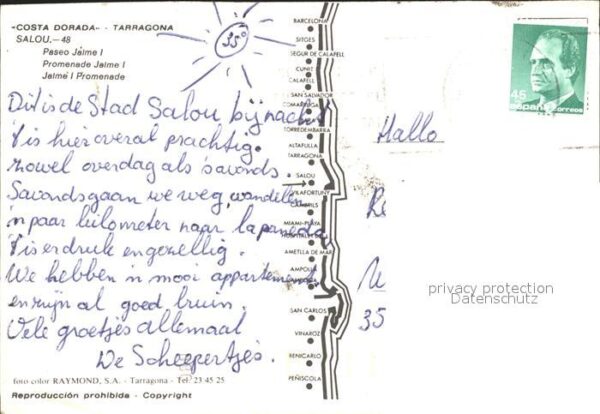 «COSTA DORADA» - TARRAGONA
SALOU.—48
Paseo Jaime I
Promenade Jaime I
Jaime I Promenade
35°
Dit is de Stad Salou bij nacht
't is hier overal prachtig.
zowel overdag als 's avonds.
Savonds gaan we weg, wandelen
'n paar kilometer naar la paneda
't is er druk en gezellig.
We hebben 'n mooi appartement
en zijn al goed bruin.
Vele groetjes allemaal
De Scheepertjes.
foto color RAYMOND, S.A. - Tarragona - Tel. 23 45 25
Reproducción prohibida - Copyright
BARCELONA
SITGES
SEGUR DE CALAFELL
CUNIT
CALAFELL
SAN SALVADOR
COMARRUGA
TORREDEMBARRA
ALTAFULLA
TARRAGONA
SALOU
VILAFORTUNY
CAMBRILS
MIAMI-PLAYA
AMETLLA DE MAR
AMPOLLA
SAN CARLOS
VINAROZ
BENICARLO
PEÑISCOLA
45
ESPAÑA correos
Hallo
Re
U
35
privacy protection
Datenschutz